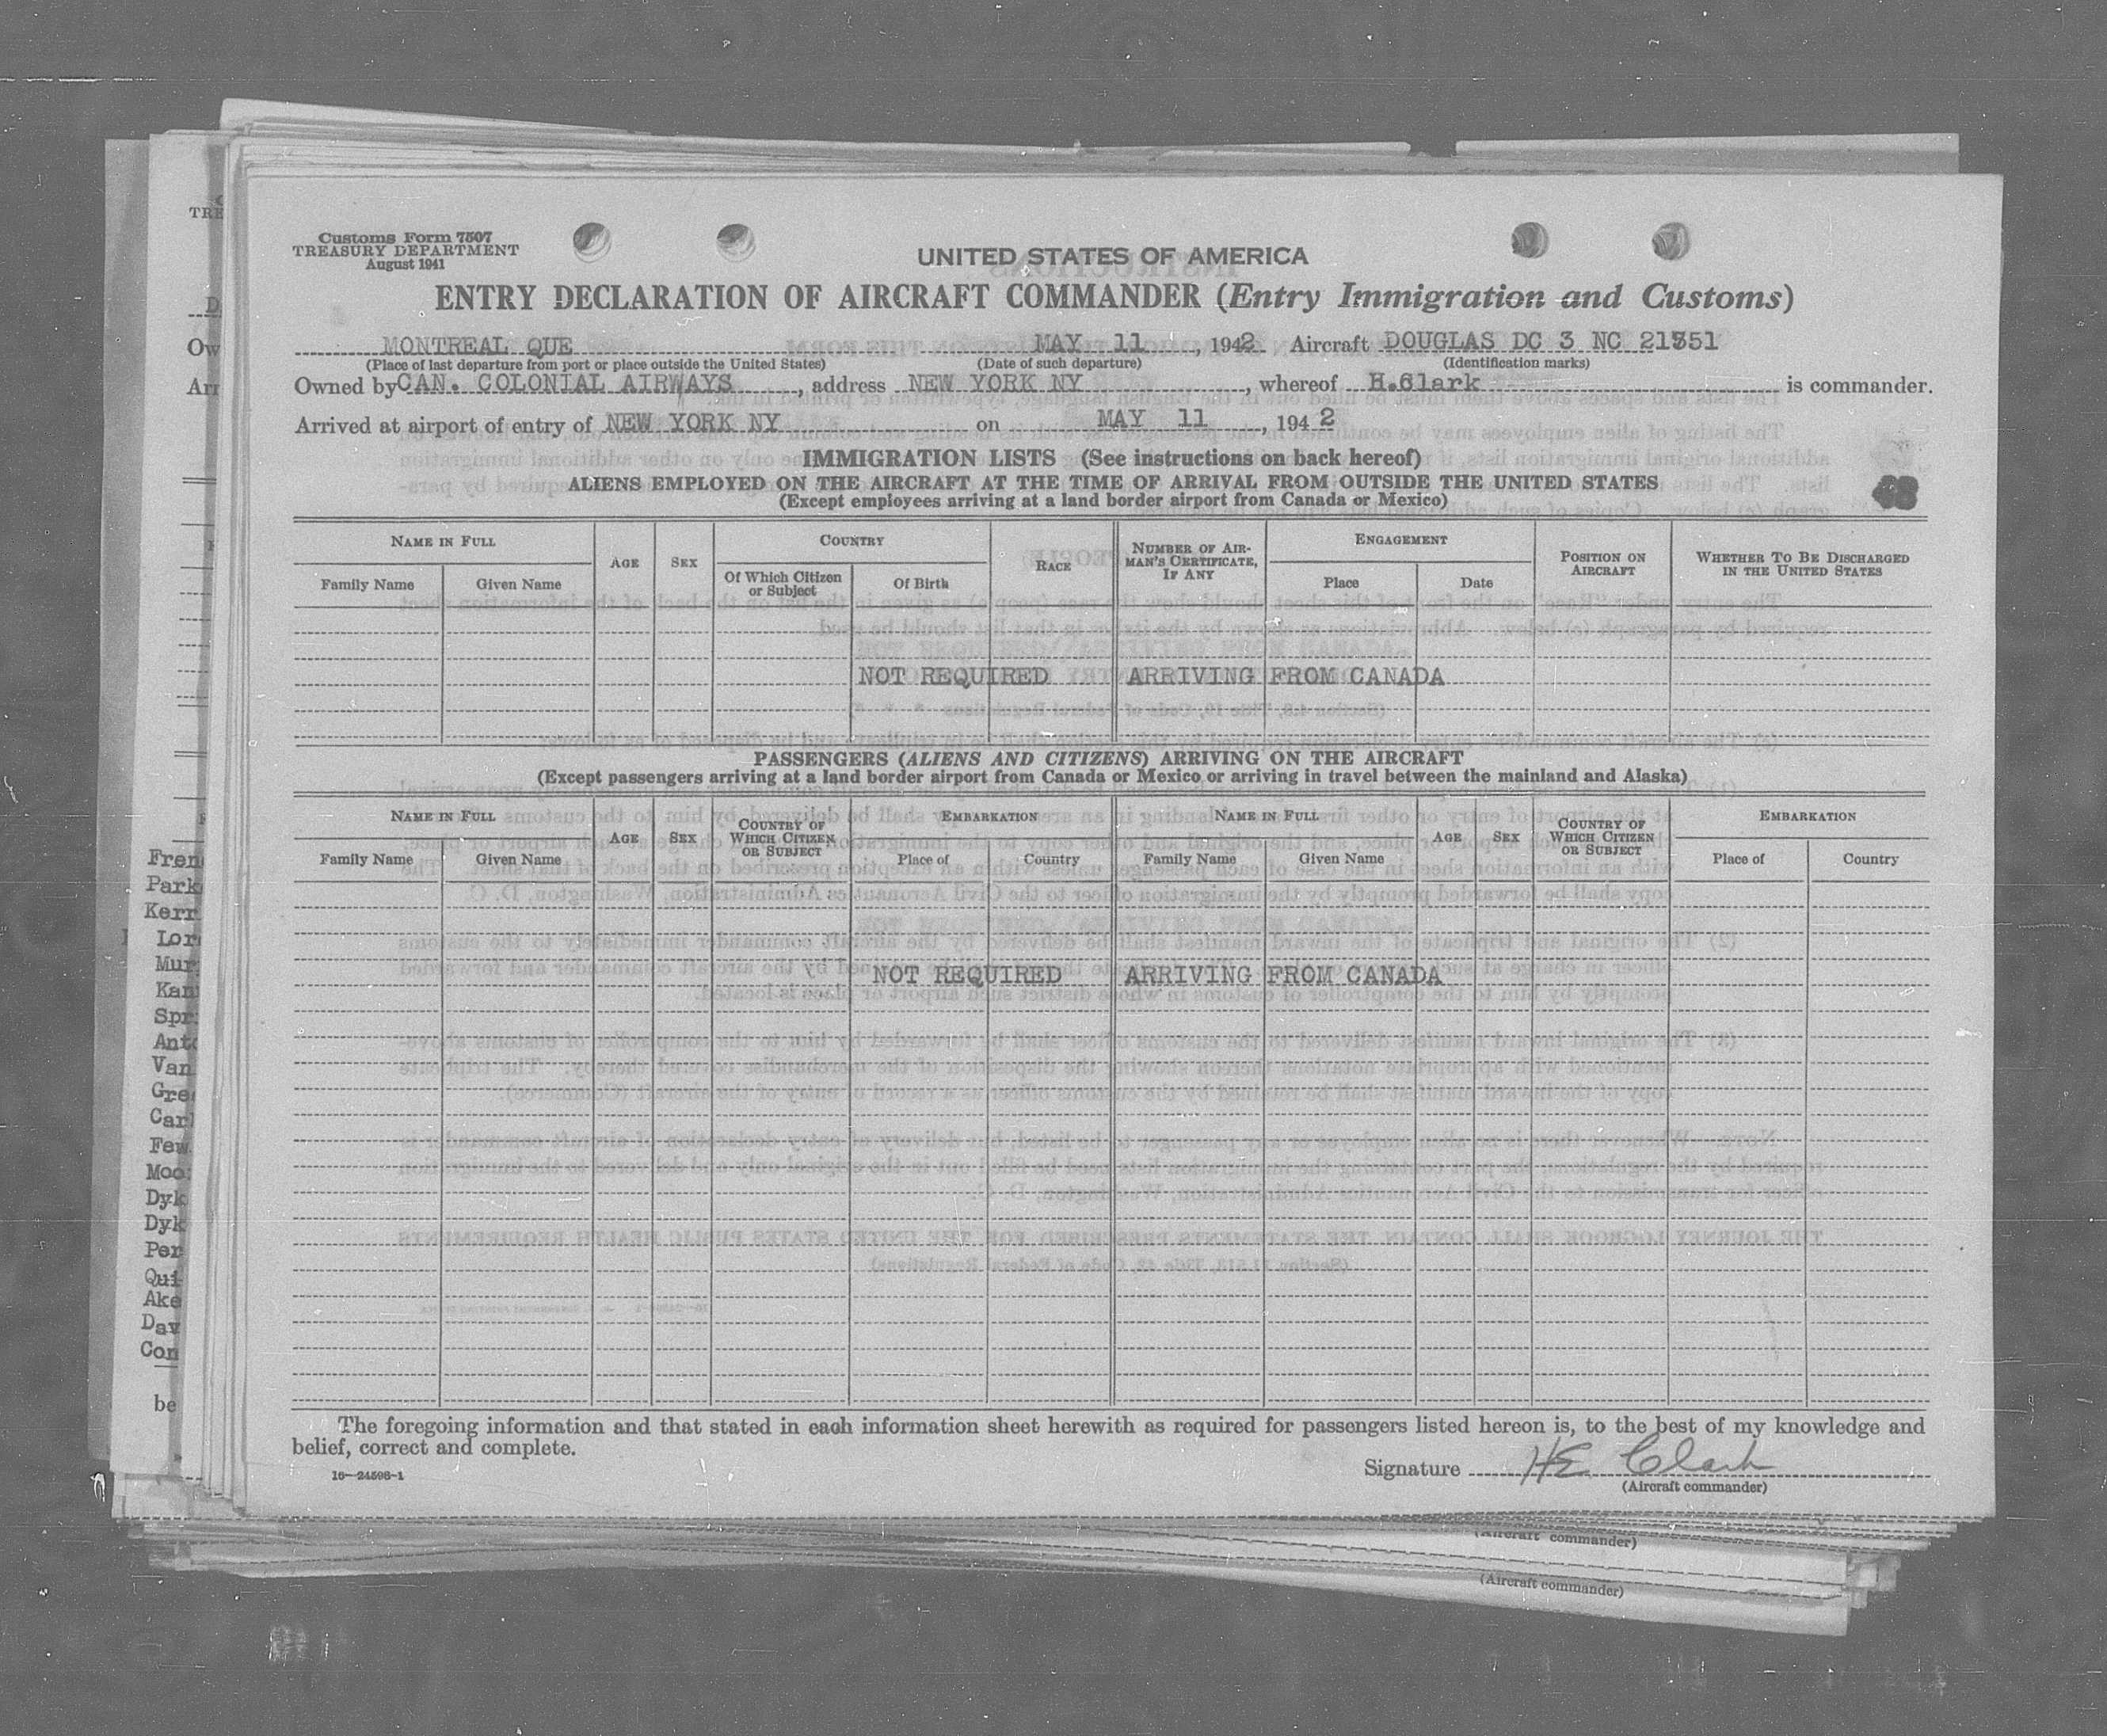 Customs Form 7507
TREASURY DEPARTMENT
August 1941
UNITED STATES OF AMERICA
ENTRY DECLARATION OF AIRCRAFT COMMANDER (Entry Immigration and Customs)
MONTREAL QUE MAY 11, 1942 Aircraft DOUGLAS DC 3 NC 21751
(Place of last departure from port or place outside the United States) (Date of such departure) (Identification marks)
Owned by CAN. COLONIAL AIRWAYS, address NEW YORK NY, whereof H.Clark is commander.
Arrived at airport of entry of NEW YORK NY on MAY 11, 1942
IMMIGRATION LISTS (See instructions on back hereof)
ALIENS EMPLOYED ON THE AIRCRAFT AT THE TIME OF ARRIVAL FROM OUTSIDE THE UNITED STATES
(Except employees arriving at a land border airport from Canada or Mexico)
NAME IN FULL AGE SEX COUNTRY RACE NUMBER OF AIRMAN'S CERTIFICATE, IF ANY ENGAGEMENT POSITION ON AIRCRAFT WHETHER TO BE DISCHARGED IN THE UNITED STATES
Family Name Given Name Of Which Citizen or Subject Of Birth Place Date
NOT REQUIRED ARRIVING FROM CANADA
PASSENGERS (ALIENS AND CITIZENS) ARRIVING ON THE AIRCRAFT
(Except passengers arriving at a land border airport from Canada or Mexico or arriving in travel between the mainland and Alaska)
NAME IN FULL AGE SEX COUNTRY OF WHICH CITIZEN OR SUBJECT EMBARKATION NAME IN FULL AGE SEX COUNTRY OF WHICH CITIZEN OR SUBJECT EMBARKATION
Family Name Given Name Place of Country Family Name Given Name Place of Country
NOT REQUIRED ARRIVING FROM CANADA
The foregoing information and that stated in each information sheet herewith as required for passengers listed hereon is, to the best of my knowledge and
belief, correct and complete.
16—24598-1
Signature HE Clark
(Aircraft commander)
(Aircraft commander)
(Aircraft commander)